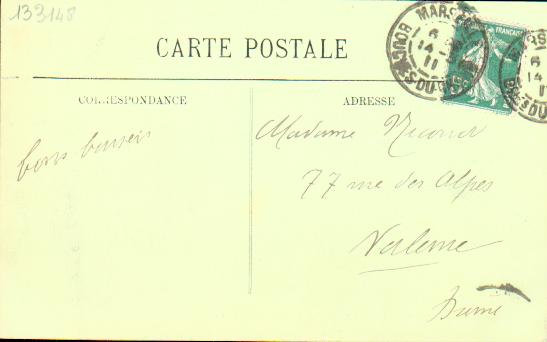 133148
CARTE POSTALE
CORRESPONDANCE
ADRESSE
bons baisers
Madame
77 rue des Alpes
Valence
Drome
MARSEILLE
6
14
11
BOUCHES-DU-RHONE
FRANÇAISE